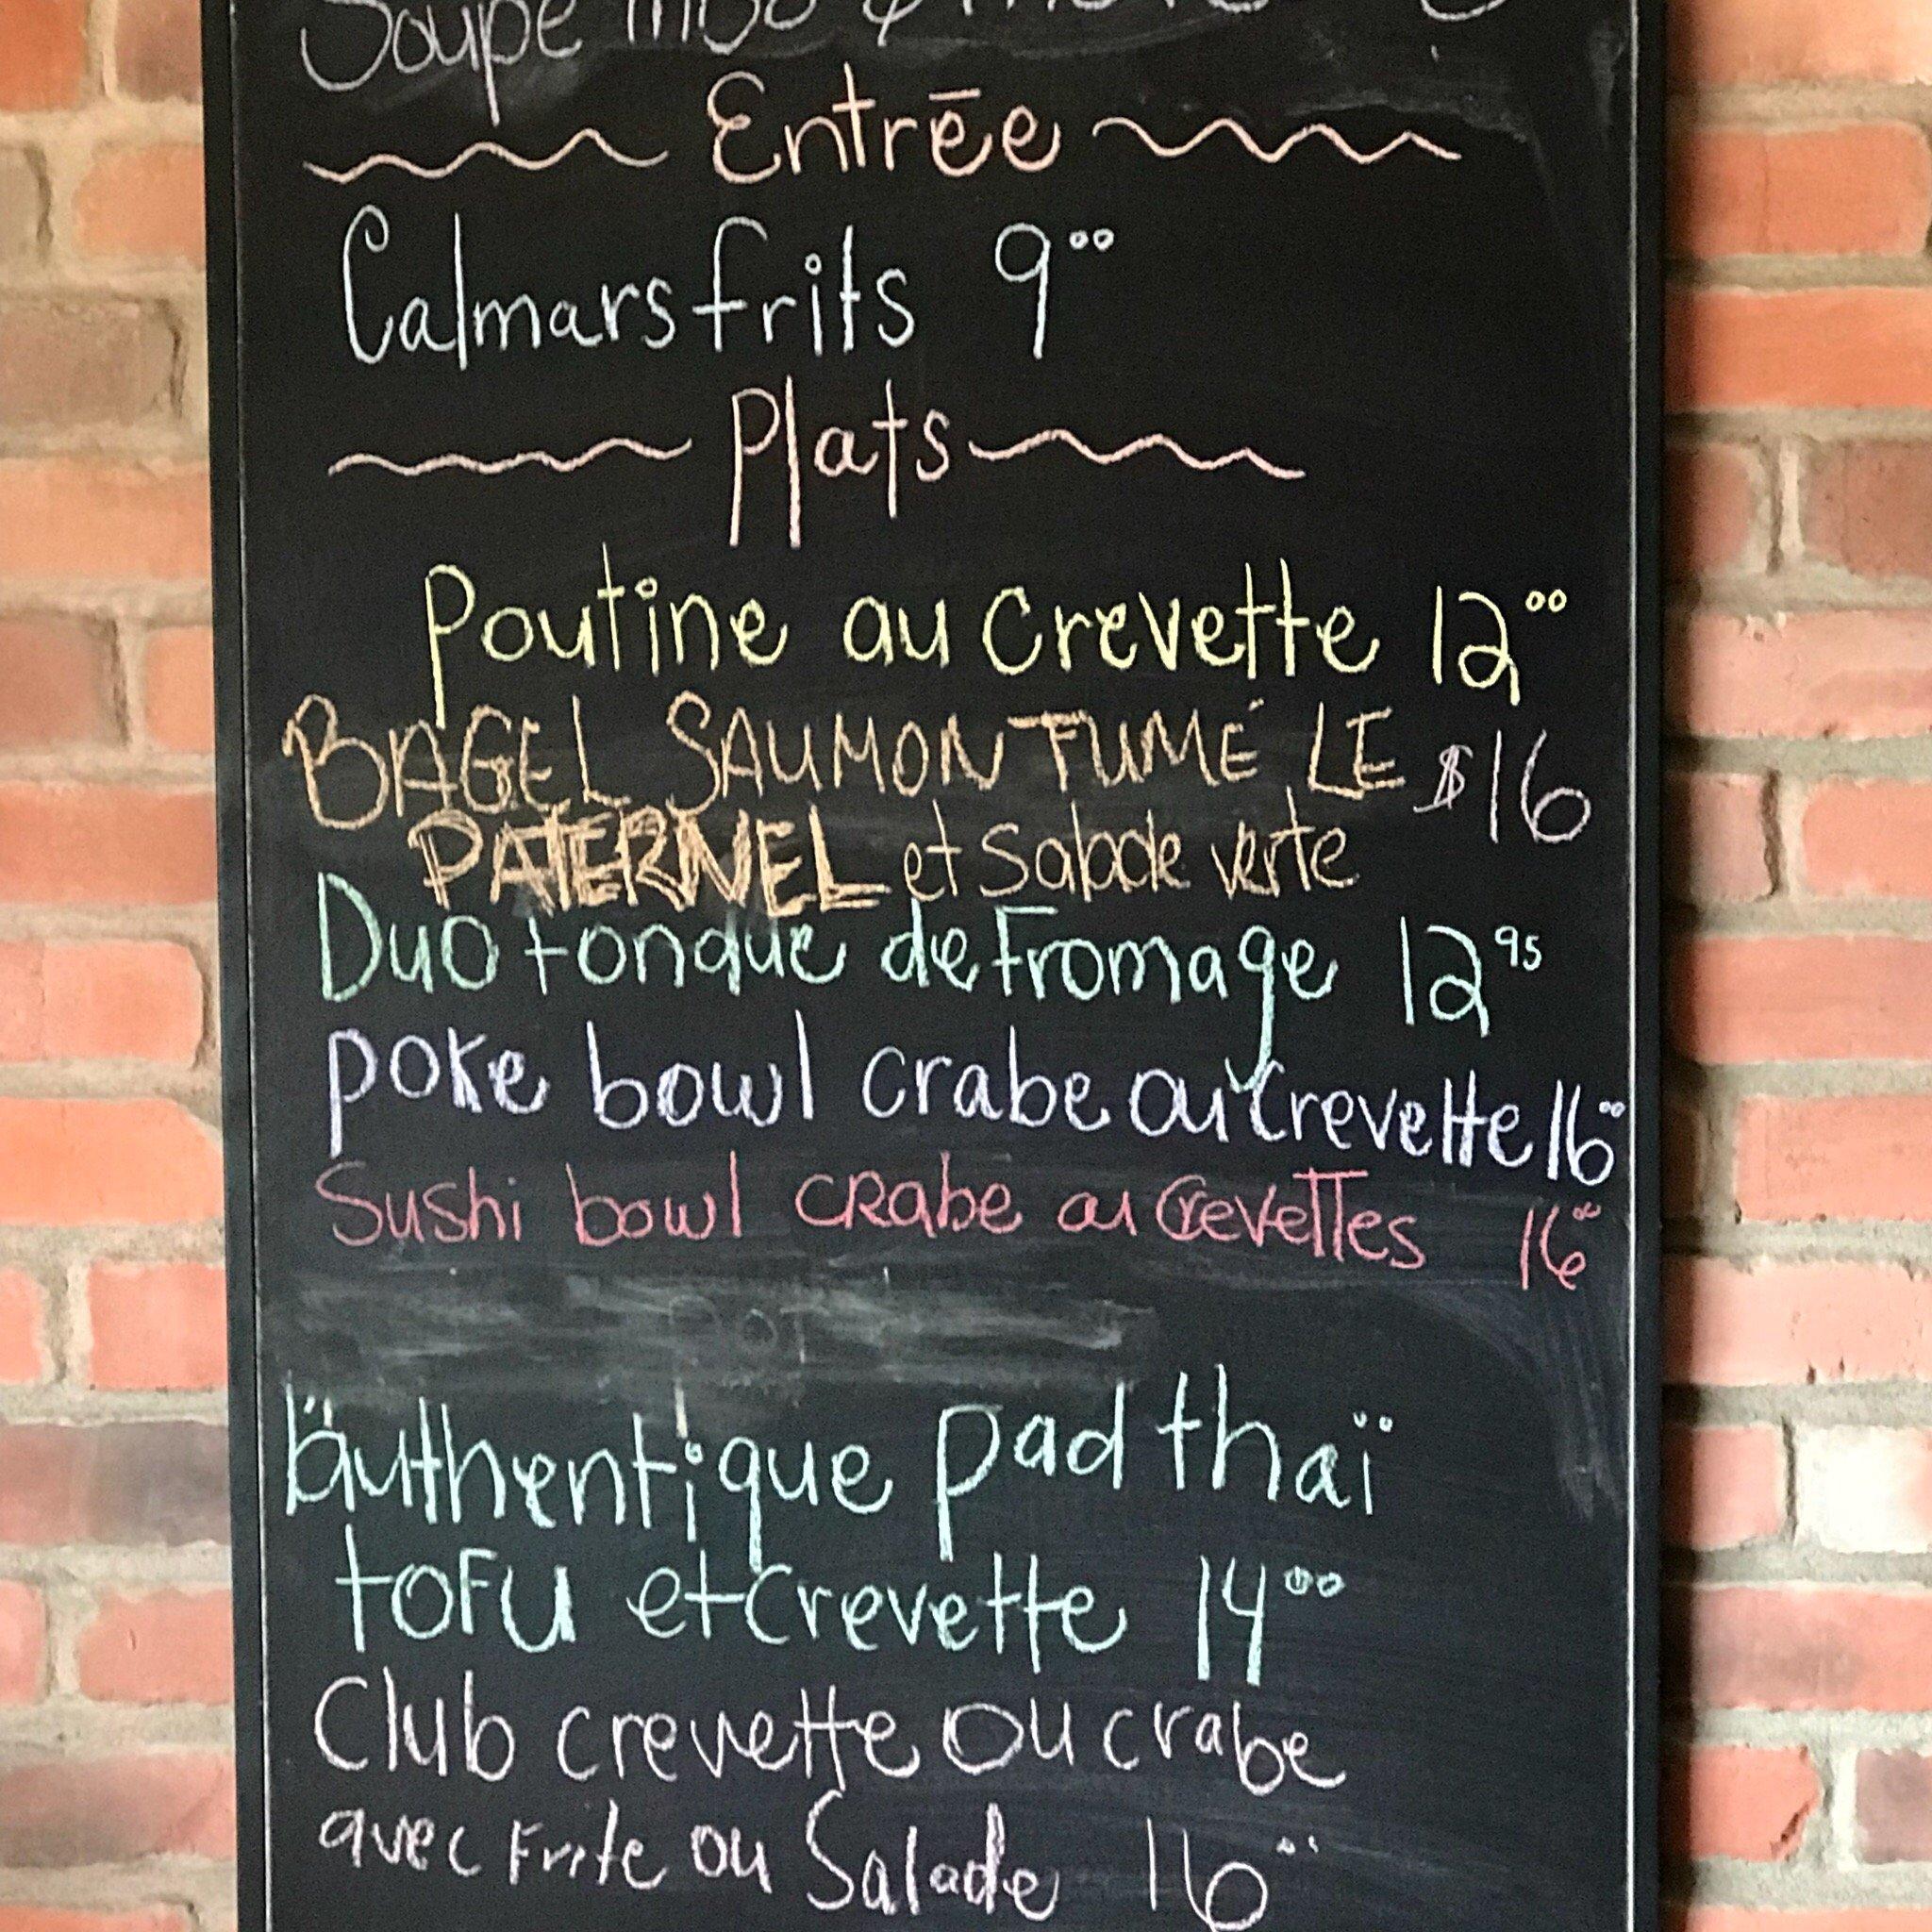 Soupe miso
Entrēe
Calmars frits 9⁰⁰
Plats
Poutine au crevette 12⁰⁰
BAGEL SAUMON FUMÉ LE $16
PATERNEL et salade verte
Duo fondue de fromage 12⁹⁵
poke bowl crabe ou crevette 16⁰⁰
Sushi bowl cRabe ou CrevetTes 16⁰⁰
authentique pad thaï
toFu et crevette 14⁰⁰
Club crevette ou crabe
avec Frite ou Salade 16⁰⁰